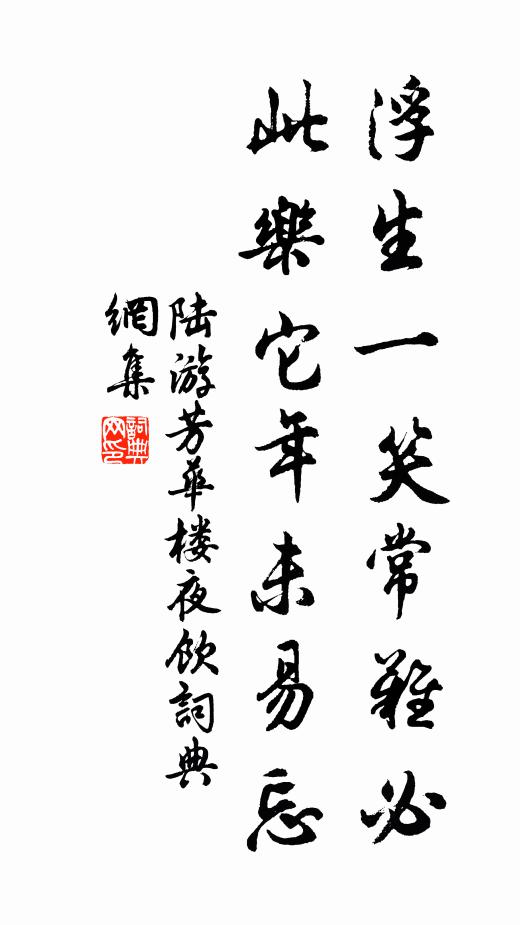 浮生一笑常難必
此樂它年未易忘
陆游芳華楼夜飲詞典
網集
詞典
网印